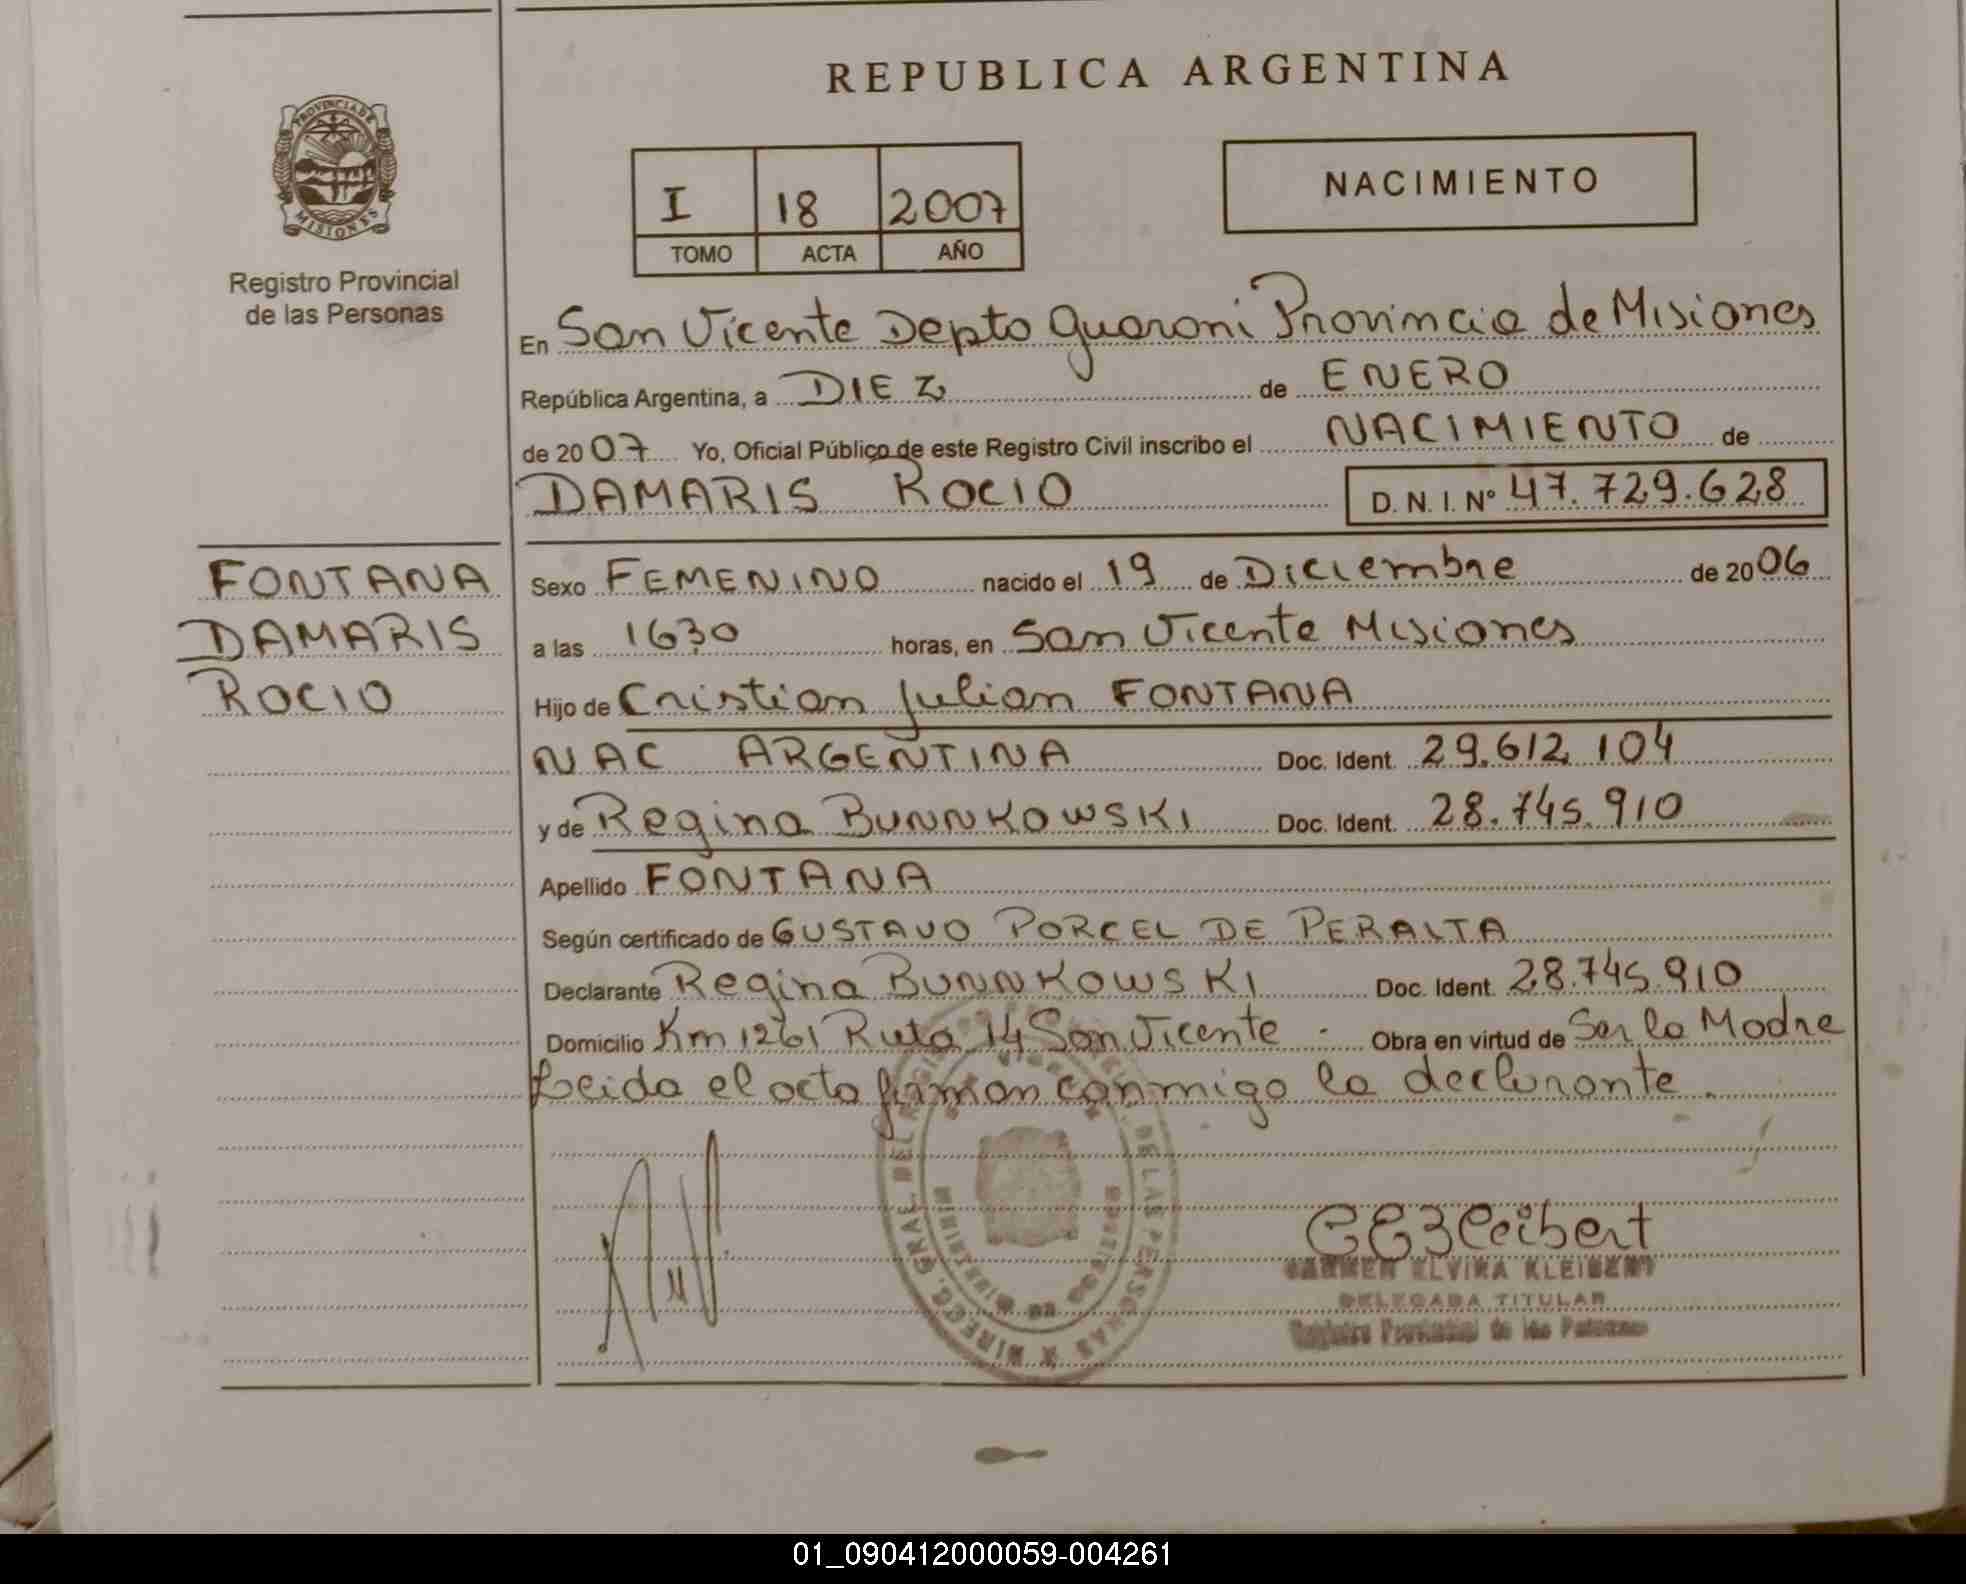 REPUBLICA ARGENTINA
PROVINCIA DE
MISIONES
Registro Provincial
de las Personas
I 18 2007
TOMO ACTA AÑO
NACIMIENTO
En San Vicente Depto Guarani Provincia de Misiones
República Argentina, a DIEZ de ENERO
de 2007 Yo, Oficial Público de este Registro Civil inscribo el NACIMIENTO de
DAMARIS ROCIO D. N. I. Nº 47.729.628
FONTANA
DAMARIS
ROCIO
Sexo FEMENINO nacido el 19 de Diciembre de 2006
a las 1630 horas, en San Vicente Misiones
Hijo de Cristian Julian FONTANA
NAC ARGENTINA Doc. Ident. 29.612.104
y de Regina BUNNKOWSKI Doc. Ident. 28.745.910
Apellido FONTANA
Según certificado de GUSTAVO PORCEL DE PERALTA
Declarante Regina BUNNKOWSKI Doc. Ident. 28.745.910
Domicilio Km 1261 Ruta 14 San Vicente - Obra en virtud de Ser la Madre
Leida el acta firman conmigo la declarante.
DIREC. GRAL. DEL DE LAS PERSONAS
CARMEN ELVIRA KLEIBERT
DELEGADA TITULAR
Registro Provincial de las Personas
01_090412000059-004261